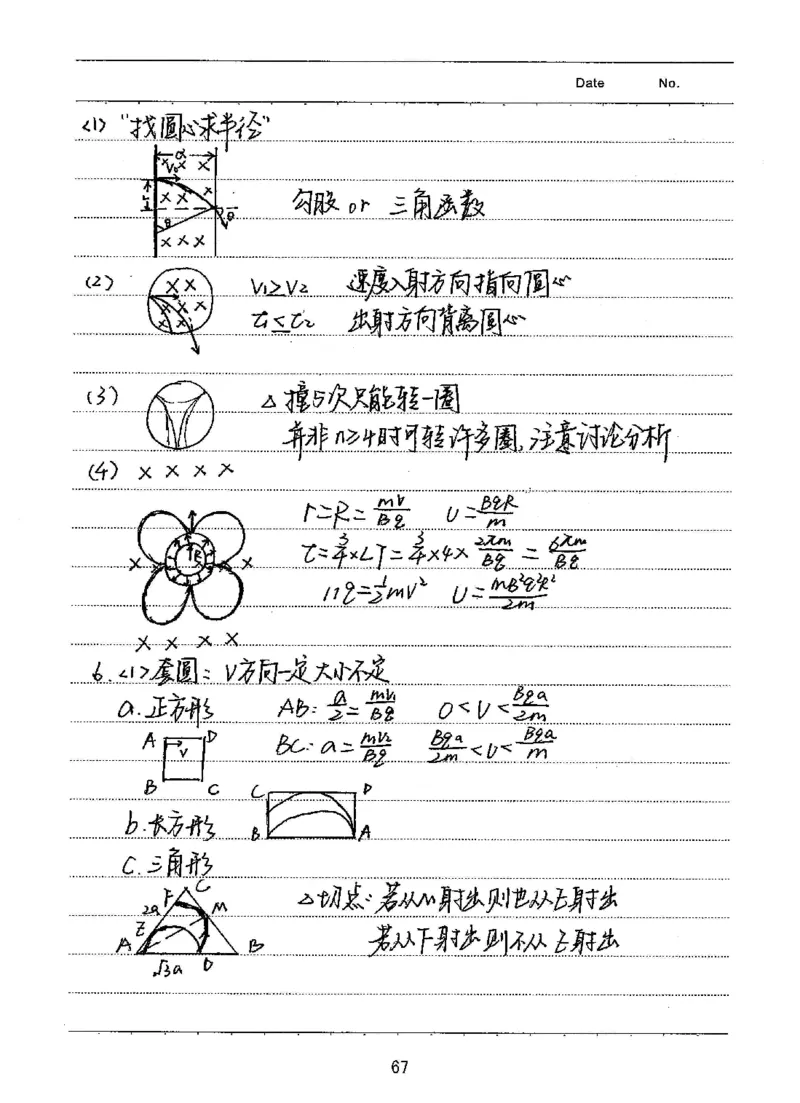 Date No.
<1> "找圆心求半径"
勾股 or 三角函数
(2) V₁≥V₂ 速度入射方向指向圆心
t₁≤t₂ 出射方向背离圆心
(3) △撞5次只能转一圈
并非n≥4时可转许多圈,注意讨论分析
(4) × × × ×
r=R=mv/Bq U=BqR/m
t=3/4×4T=3/4×4×2πm/Bq=6πm/Bq
Uq=1/2mv² U=mB²q²R²/2m
6.<1>套圆:V方向一定大小不定
a.正方形 AB: a/2=mv₁/Bq 0<V<Bqa/2m
BC: a=mv₂/Bq Bqa/2m<V<Bqa/m
A D
V
B C
C D
b.长方形 B A
c.三角形
C
F
2a M
E
A B
√3a D
△切点:若从M射出则也从E射出
若从F射出则不从E射出
67